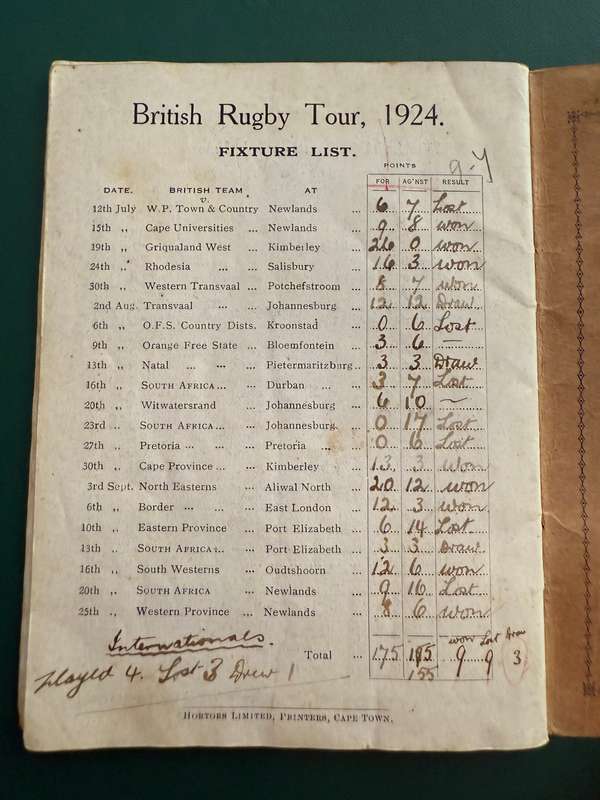 British Rugby Tour, 1924.
FIXTURE LIST.
9-7
POINTS
DATE. BRITISH TEAM AT FOR AG'NST RESULT
v.
12th July W.P. Town & Country Newlands ... 6 7 Lost
15th ,, Cape Universities ... Newlands ... 9 8 won
19th ,, Griqualand West ... Kimberley ... 26 0 won
24th ,, Rhodesia ... ... Salisbury ... 16 3 won
30th ,, Western Transvaal ... Potchefstroom ... 8 7 won
2nd Aug. Transvaal ... ... Johannesburg ... 12 12 Draw
6th ,, O.F.S. Country Dists. Kroonstad ... 0 6 Lost
9th ,, Orange Free State ... Bloemfontein ... 3 6 —
13th ,, Natal ... ... ... Pietermaritzburg... 3 3 Draw
16th ,, SOUTH AFRICA... ... Durban ... ... 3 7 Lost
20th ,, Witwatersrand Johannesburg ... 6 10 ~
23rd ,, SOUTH AFRICA... ... Johannesburg. ... 0 17 Lost
27th ,, Pretoria ... ... ... Pretoria ... ... 0 6 Lost
30th ,, Cape Province ... ... Kimberley ... 13 3 won
3rd Sept. North Easterns ... Aliwal North ... 20 12 won
6th ,, Border ... ... ... East London ... 12 3 won
10th ,, Eastern Province ... Port Elizabeth ... 6 14 Lost
13th ,, SOUTH AFRICA... ... Port Elizabeth ... 3 3 Draw
16th ,, South Westerns ... Oudtshoorn ... 12 6 won
20th ,, SOUTH AFRICA ... Newlands ... 9 16 Lost
25th ,, Western Province ... Newlands ... 8 6 won
won Lost Draw
Internationals.
Total ... 175 9 9 3
played 4. Lost 3 Drew 1
155
HORTORS LIMITED, PRINTERS, CAPE TOWN.